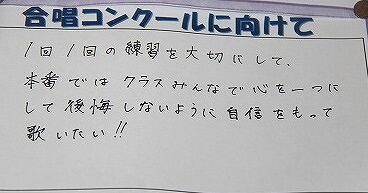 合唱コンクールに向けて
1回1回の練習を大切にして、
本番ではクラスみんなで心を一つに
して後悔しないように自信をもって
歌いたい!!